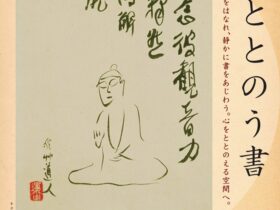 ととのう書
をはなれ、静かに書をあじわう。心をととのえる空間へ。
念彼觀音力
釋然
得解
道人